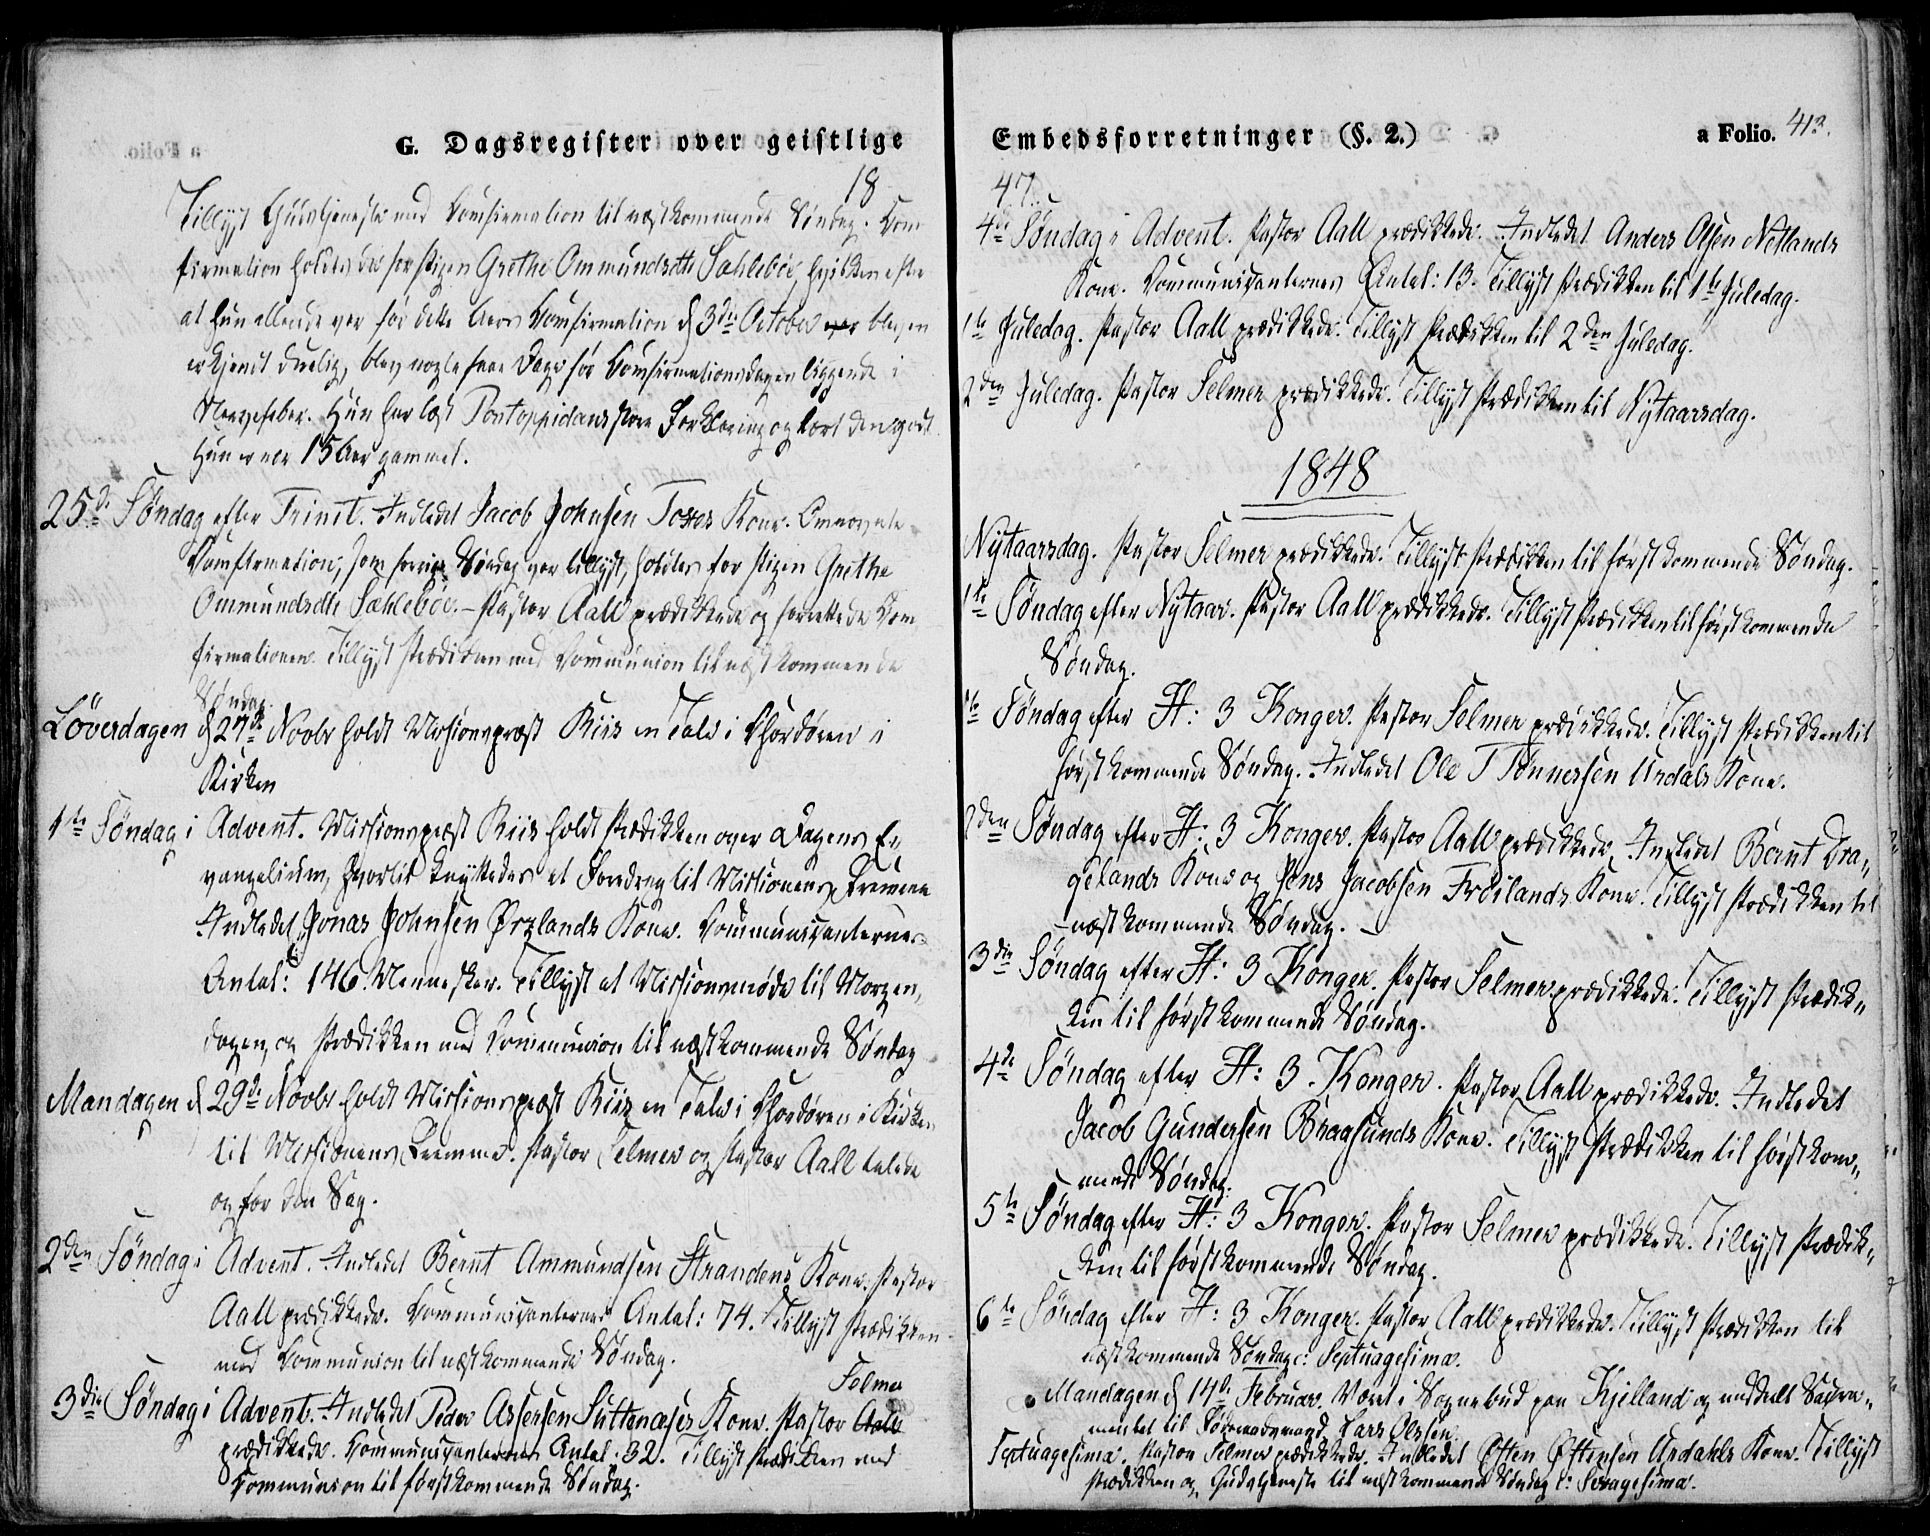 G. Dagsregister over geistlige
18
Tillyst Gudstjeneste med Confirmation til næstkommende Søndag. Con-
firmation holdtes da for Pigen Grethe Ommundsdtr Sæhlebøe, hvilken efter
at hun allerede var før dette Aars Confirmation d 3die October blev en
erkjendt duelig, blev nogle faae Dage før Confirmationsdagen liggende i
Nervefeber. Hun har læst Pontoppidans store Forklaring og lært den godt
Hun er nær 15 Aar gammel.
25de Søndag efter Trinit. Indledet Jacob Johnsen Toxes Kone. Omnævnte
Confirmation, som forrige Søndag var tillyst, holdtes for Pigen Grethe
Ommundsdtr Sæhlebøe. - Pastor Aall prædikkede og forrettede Con
firmationen. Tillyst Prædikken med Communion til næstkommende
Søndag.
Løverdagen d 27de Novbr holdt Missionspræst Riis en Tale i Chordøren i
Kirken
1ste Søndag i Advent. Missionspræst Riis holdt Prædikken over Dagens E-
vangelium, hvortil knyttedes et Foredrag til Missionens Fremme
Indledet Jonas Johnsen Ørslands Kone. Communicanternes
Antal: 146 Mennesker. Tillyst et Missionsmøde til Morgen,
dagen, og Prædikken med Communion til næstkommende Søndag
Mandagen d 29de Novbr holdt Missionspræst Riis en Tale i Chordøren i Kirken
til Missionens Fremme. Pastor Selmer og Pastor Aall talede
og for den Sag.
2den Søndag i Advent. Indledet Bernt Ammundsen Strandens Kone. Pastor
Aall prædikkede. Communicanternes Antal: 74. Tillyst Prædikken
med Communion til næstkommende Søndag.
Selmer
3die Søndag i Advent. Indledet Peder Assersen Suttenæses Kone. Pastor Aall
prædikkede. Communicanternes Antal: 32. Tillyst Prædikken med
Communion til førstkommende Søndag.
Embedsforretninger (§. 2.) a Folio. 413.
47.
4de Søndag i Advent. Pastor Aall prædikkede. Indledet Anders Olsen Netlands
Kone. Communicanternes Antal: 13. Tillyst Prædikken til 1ste Juledag.
1ste Juledag. Pastor Aall prædikkede. Tillyst Prædikken til 2den Juledag.
2den Juledag. Pastor Selmer prædikkede. Tillyst Prædikken til Nytaarsdag.
1848
Nytaarsdag. Pastor Selmer prædikkede. Tillyst Prædikken til førstkommende Søndag.
1ste Søndag efter Nytaar. Pastor Aall prædikkede. Tillyst Prædikken til førstkommende
Søndag.
1ste Søndag efter H: 3 Konger. Pastor Selmer prædikkede. Tillyst Prædikken til
førstkommende Søndag. Indledet Ole T Tønnessen Urdals Kone.
2den Søndag efter H: 3 Konger. Pastor Aall prædikkede. Indledet Bernt Dra„
gelands Kone og Jens Jacobsen Frøilands Kone. Tillyst Prædikken til
næstkommende Søndag. -
3die Søndag efter H: 3 Konger. Pastor Selmer prædikkede. Tillyst Prædik„
ken til førstkommende Søndag.
4de Søndag efter H: 3. Konger. Pastor Aall prædikkede. Indledet
Jacob Gundersen Braasunds Kone. Tillyst Prædikken til førstkom„
mende Søndag.
5te Søndag efter H: 3 Konger. Pastor Selmer prædikkede. Tillyst Prædik„
ken til førstkommende Søndag.
6te Søndag efter H: 3 Konger. Pastor Aall prædikkede. Tillyst Prædikken til
næstkommende Søndag c: Septuagesima.
Mandagen d 14de Februar. Været i Sognebud paa Kjelland og meddelt Sacra„
mentet til Lars Olssen.
Septuagesima. Pastor Selmer prædikkede. Indledet Østen Østensen Urdahls Kone. Tillyst
Prædikken og Gudstjeneste til næstkommende Søndag c: Sexagesima.